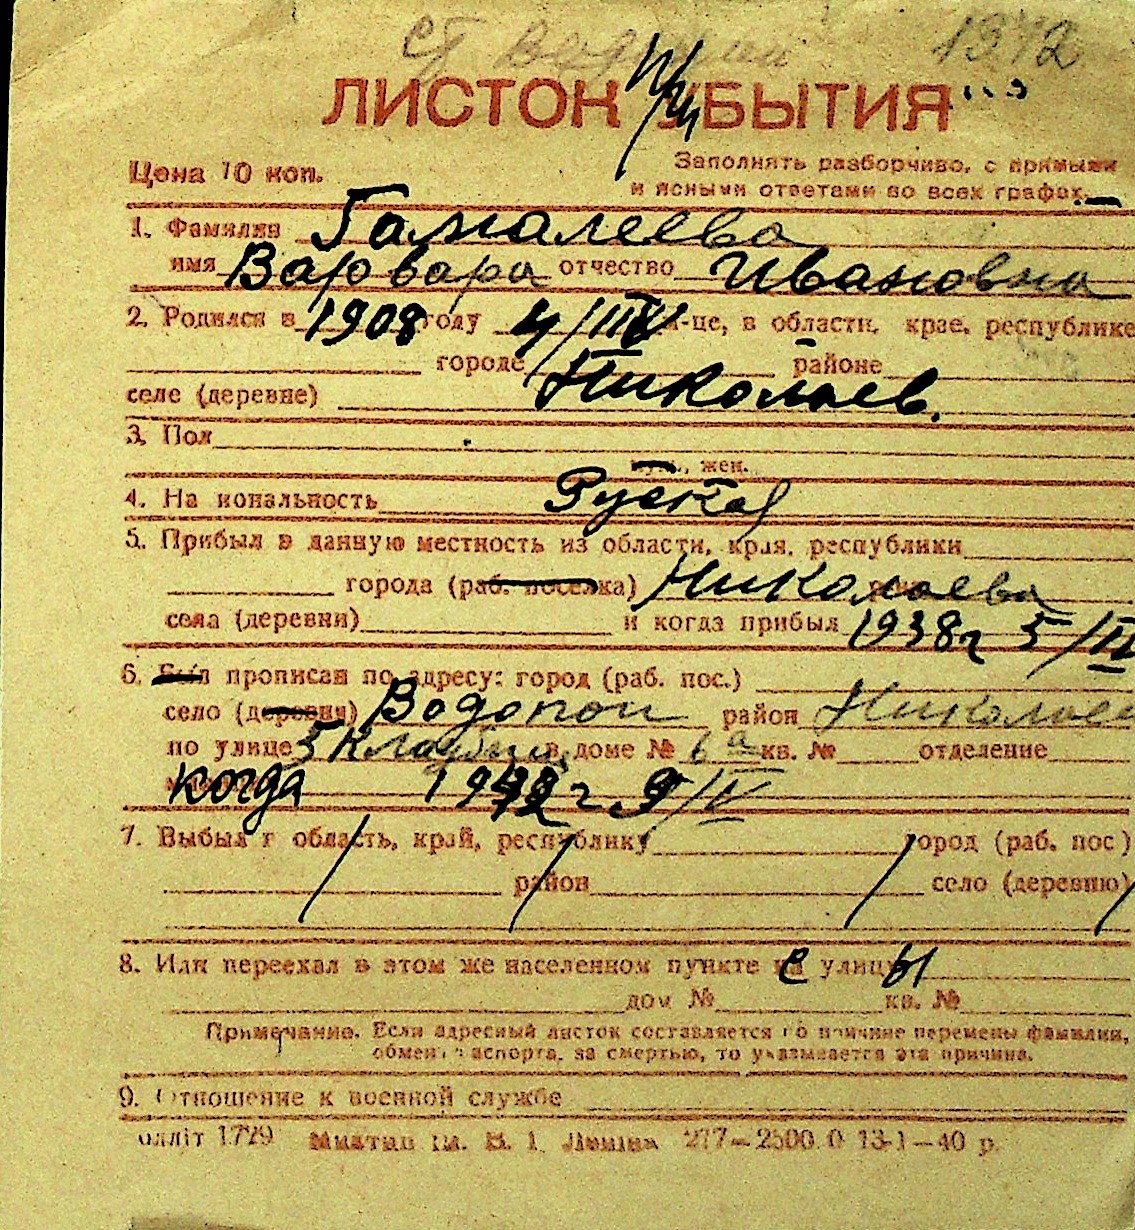 ст Водопой 1372
ЛИСТОК УБЫТИЯ
При
Цена 10 коп. Заполнять разборчиво, с прямыми
и ясными ответами во всех графах.
1. Фамилия Гамалеева
имя Варвара отчество Ивановна
2. Родился в 1908 году 4/III м-це, в области, крае, республике
городе районе
селе (деревне) Николаев.
3. Пол
муж., жен.
4. Национальность Руская
5. Прибыл в данную местность из области, края, республики
города (раб. поселка) Николаева
села (деревни) и когда прибыл 1938 г 5/IV
6. Был прописан по адресу: город (раб. пос.)
село (деревня) Водопой район Николаев
по улице 5 в доме № 6а кв. № отделение
когда 1942 г 9/IV
7. Выбыл в область, край, республику город (раб. пос)
район село (деревню)
8. Или переехал в этом же населенном пункте с улицы
дом № кв. №
Примечание. Если адресный листок составляется по причине перемены фамилии,
обмена паспорта, за смертью, то указывается эта причина.
9. Отношение к военной службе
олліт 1729 ім. В. І. Леніна 277—2500.0 13-1—40 р.